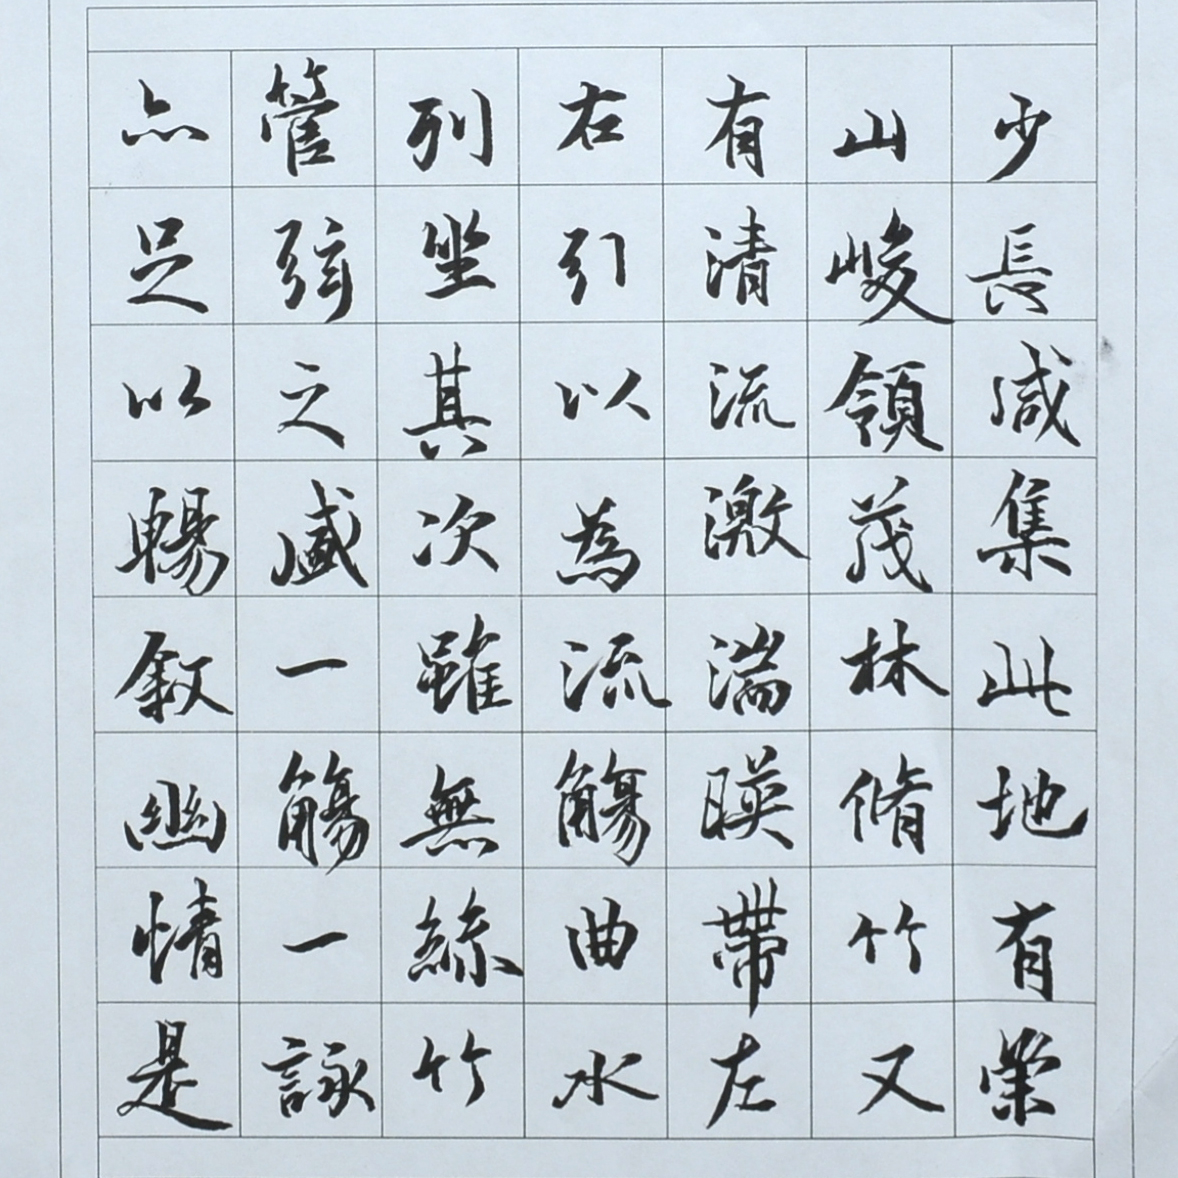 少長咸集此地有崇
山峻領茂林脩竹又
有清流激湍暎帶左
右引以為流觴曲水
列坐其次雖無絲竹
管弦之盛一觴一詠
亦足以暢敘幽情是